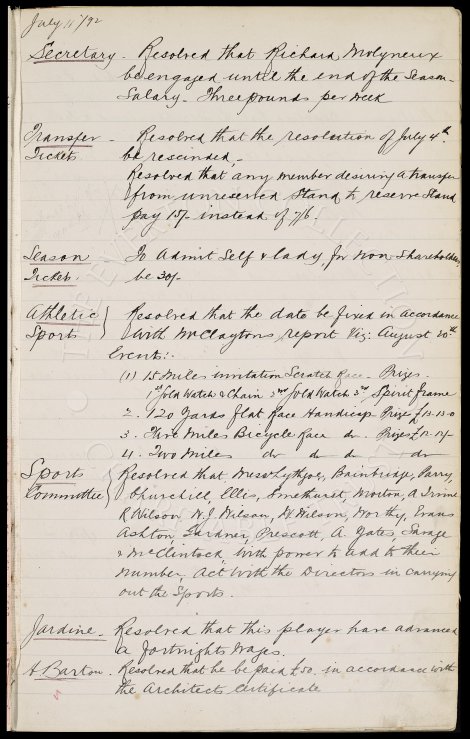 July 11th/92
Secretary - Resolved that Richard Molyneux
be engaged until the end of the Season -
Salary - Three pounds per week
Transfer - Resolved that the resolution of July 4th
Tickets be rescinded -
Resolved that any member desiring a transfer
from unreserved Stand to reserve Stand
pay 15/- instead of 7/6.
Season To Admit Self & lady, for non Shareholders
Tickets. be 30/-
Athletic } Resolved that the date be fixed in accordance
Sports with Mr Claytons report Viz: August 20th
Events:-
(1) 15 Miles invitation Scratch Race - Prizes
1st Gold Watch & Chain 2nd Gold Watch 3rd Spirit Frame
2. 120 Yards flat Race Handicap Prizes £
3. Three Miles Bicycle Race do. Prizes £
4. Two Miles do do do
Sports } Resolved that Messrs Lythgoe, Bainbridge, Parry,
Committee Churchill, Ellis, Smethurst, Morton, A Irvine
R Wilson W. J. Wilson, W Wilson, Worthy, Evans
Ashton, Gardner, Prescott, A. Yates, Savage
& McClintock with power to add to their
number, Act with the Directors in carrying
out the Sports.
Jardine - Resolved that this player have advanced
a fortnights Wages.
A Barton - Resolved that he be paid £50. in accordance with
the Architects Certificate